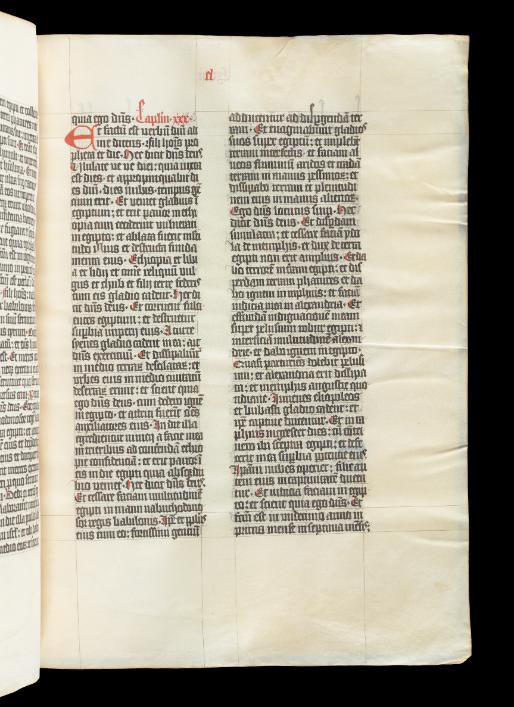 quia ego dn̄s. Capl̄m. xxx.
Et factū est verbū dn̄i ad
me dicens. fili hoīs pro
pheta et dic. Hec dicit dn̄s deus
Vlulate ve ve diei: quia iuxta
est dies. et appropinquabit di
es dn̄i. dies nubis: tempus gē
cium erit. Et veniet gladius ī
egiptum: et erit pauor in ethy
opia cum ceciderīt vulnerati
in egipto: et ablata fuerit mlti
tudo illius et destructa funda
menta eius. Ethiopia et libi
a et lidii et omēs reliquū vul
gus et chub et filii terre federis
cum eis gladio cadent. Hec di
cit dn̄s deus. Et corruent fulci
entes egiptum: et destruetur
supbia imperij eius. A turre
syenes gladio cadent in ea: ait
dn̄s exercituū. Et dissipabūt
in medio terraꝝ desolataꝝ: et
vrbes eius in medio ciuitatū
desertaꝝ erunt: et scient quia
ego dn̄s. cum dedero ignē
in egipto. et attriti fuerīt oēs
auxiliatores eius. In die illa
egredientur nuncij a facie mea
in trieribus ad conterendā ethyo
pie confidentiā: et erit pauor ī
eis in die egipti quia absqꝫ du
bio veniet. Hec dicit dn̄s deus.
Et cessare faciam multitudinē
egipti in manu nabuchodono
sor regis babilonis. Ip̄e et pplus
eius cum eo: fortissimi gentiū
adducentur ad disperdendā ter
ram. Et euaginabunt gladios
suos super egiptū: et implebūt
terram interfectis: et faciam al
ueos fluminū aridos et tradā
terram in manus pessimoꝝ: et
dissipabo terram et plenitudi
nem eius in manu alienoꝝ.
Ego dn̄s locutus sum. Hec
dicit dn̄s deus. Et disperdam
simulacra: et cessare faciā ydo
la de memphis. et dux de terra
egipti non erit amplius. Et da
bo terrorē in terra egipti: et dis
perdam terram phatures et da
bo ignem in taphnis: et faciā
iudicia mea in alexandria. Et
effundā indignationē meam
super pelusium robur egipti: et
interficiā multitudinē alexan
drie. et dabo ignem in egipto.
Quasi parturiēs dolebit pelusi
um: et alexandria erit dissipa
ta: et in memphis angustie quo
tidiane. Iuuenes eliopoleos
et bubasti gladio cadent: et
ip̄e captiue ducentur. Et in ta
phnis nigrescet dies: cū cōtri
uero ibi sceptra egipti: et defe
cerit in ea supbia potentie eius.
Ipsam nubes operiet: filie au
tem eius in captiuitatē ducen
tur. Et iudicia faciam in egip
to: et scient quia ego dn̄s. Et
factū est in vndecimo anno in
primo mense in septima mēsis: